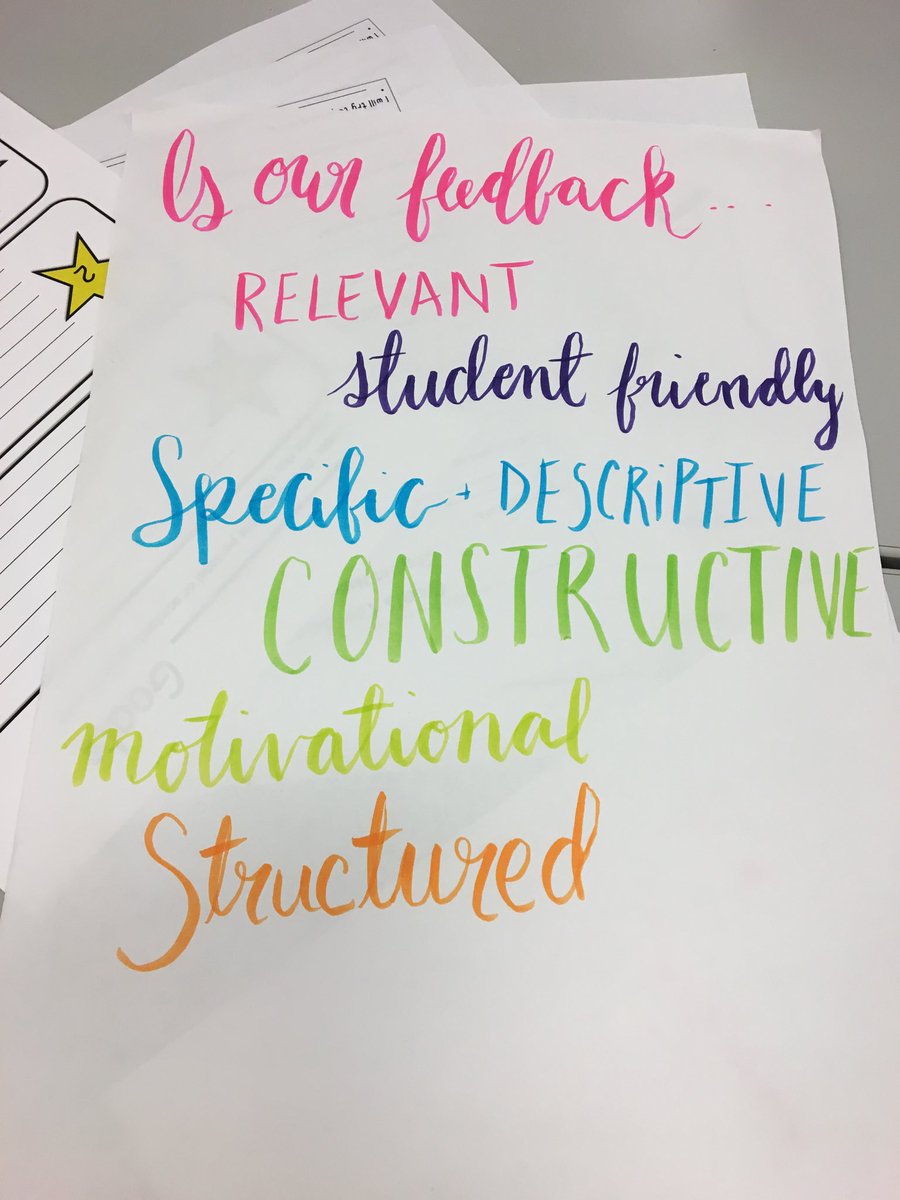 I w
I will try to
2
Is our feedback....
RELEVANT
student friendly
Specific + DESCRiPTIVE
CONSTRUCTIVE
motivational
Structured